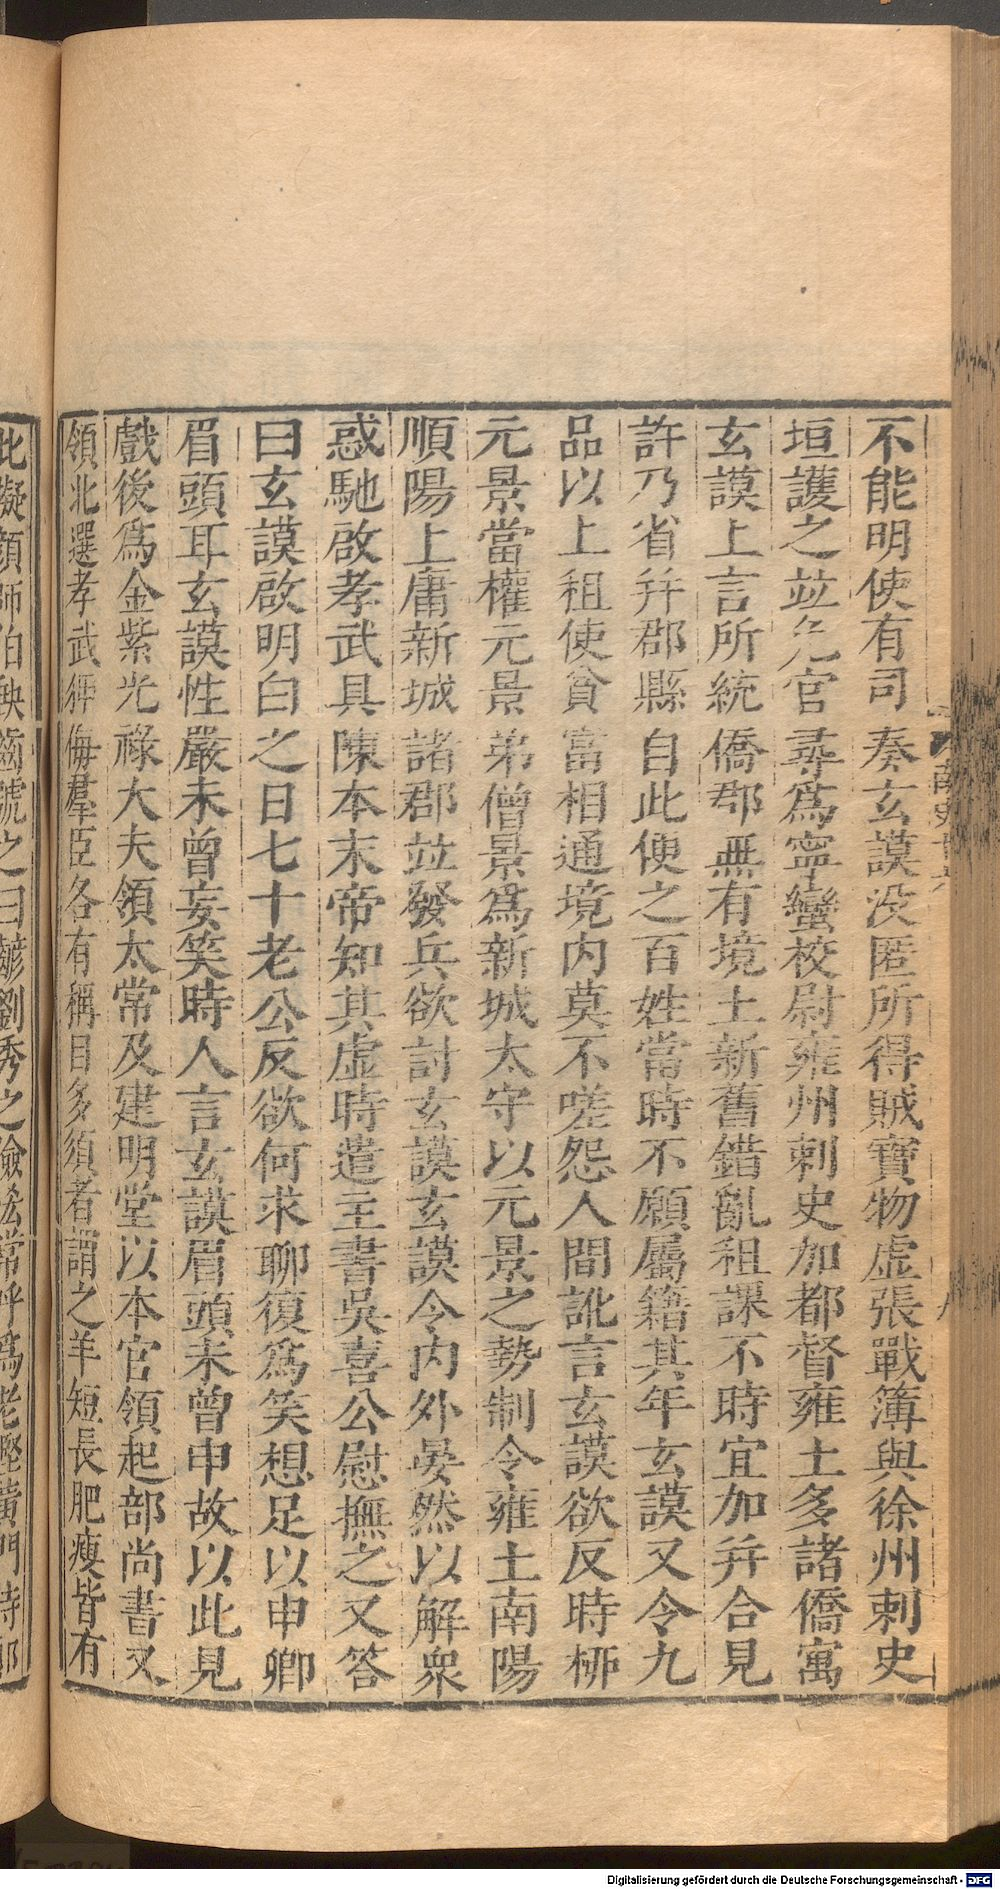 不能明使有司奏玄謨没匿所得賊寶物虚張戰簿與徐州刺史
垣護之竝免官尋爲寧蠻校尉雍州刺史加都督雍土多諸僑寓
玄謨上言所統僑郡無有境土新舊錯亂租課不時宜加幷合見
許乃省幷郡縣自此便之百姓當時不願屬籍其年玄謨又令九
品以上租使貧富相通境内莫不嗟怨人間訛言玄謨欲反時桞
元景當權元景弟僧景爲新城太守以元景之勢制令雍土南陽
順陽上庸新城諸郡竝發兵欲討玄謨玄謨令内外晏然以解衆
惑馳啟孝武具陳本末帝知其虚時遣主書吳喜公慰撫之又答
曰玄謨啟明白之日七十老公反欲何求聊復爲笑想足以申卿
眉頭耳玄謨性嚴未曾妄笑時人言玄謨眉頭未曾申故以此見
戲後爲金紫光祿大夫領太常及建明堂以本官領起部尚書又
領北選孝武狎侮羣臣各有稱目多須者謂之羊短長肥瘦皆有
此擬顔師伯䶕齒號之曰齴劉秀之儉恡常呼爲老慳黄門侍郎
Digitalisierung gefördert durch die Deutsche Forschungsgemeinschaft - DFG